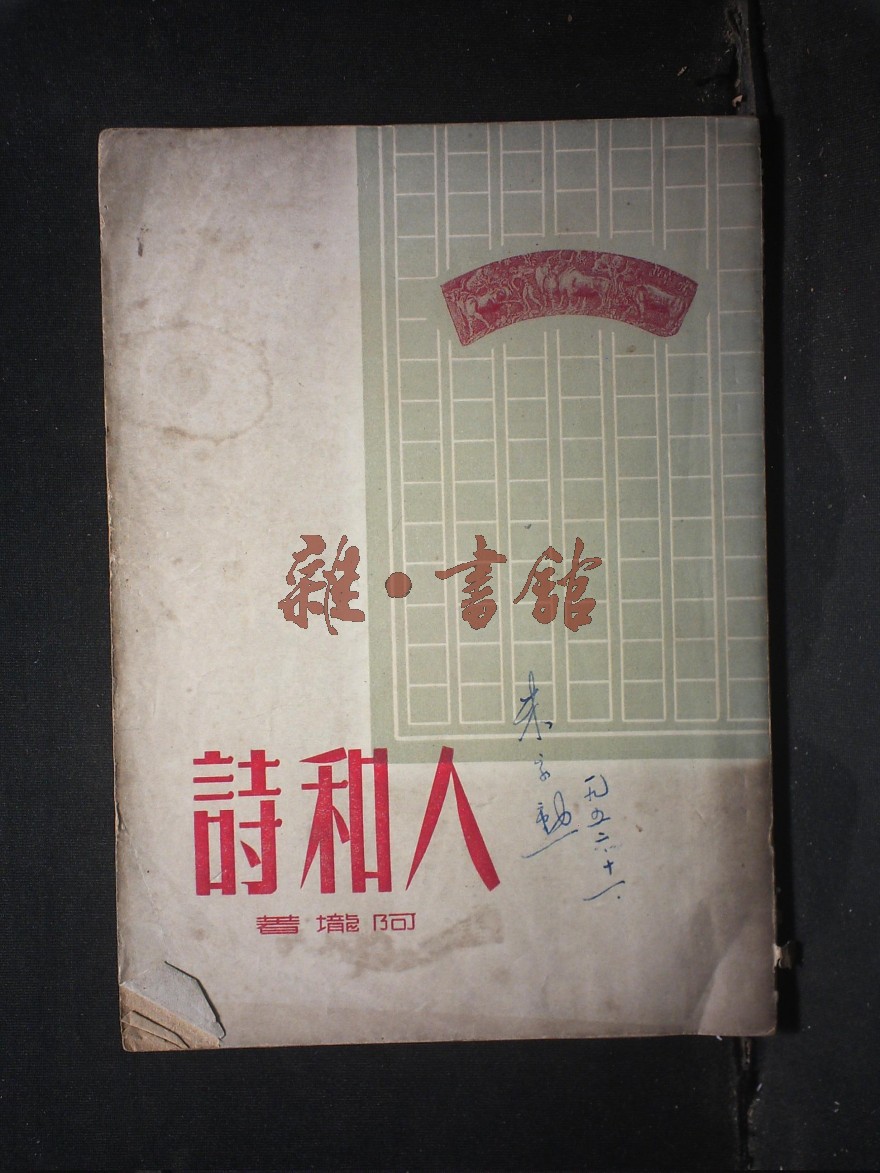 雜·書館
人和詩
阿壠著
朱
一九五二.十一.